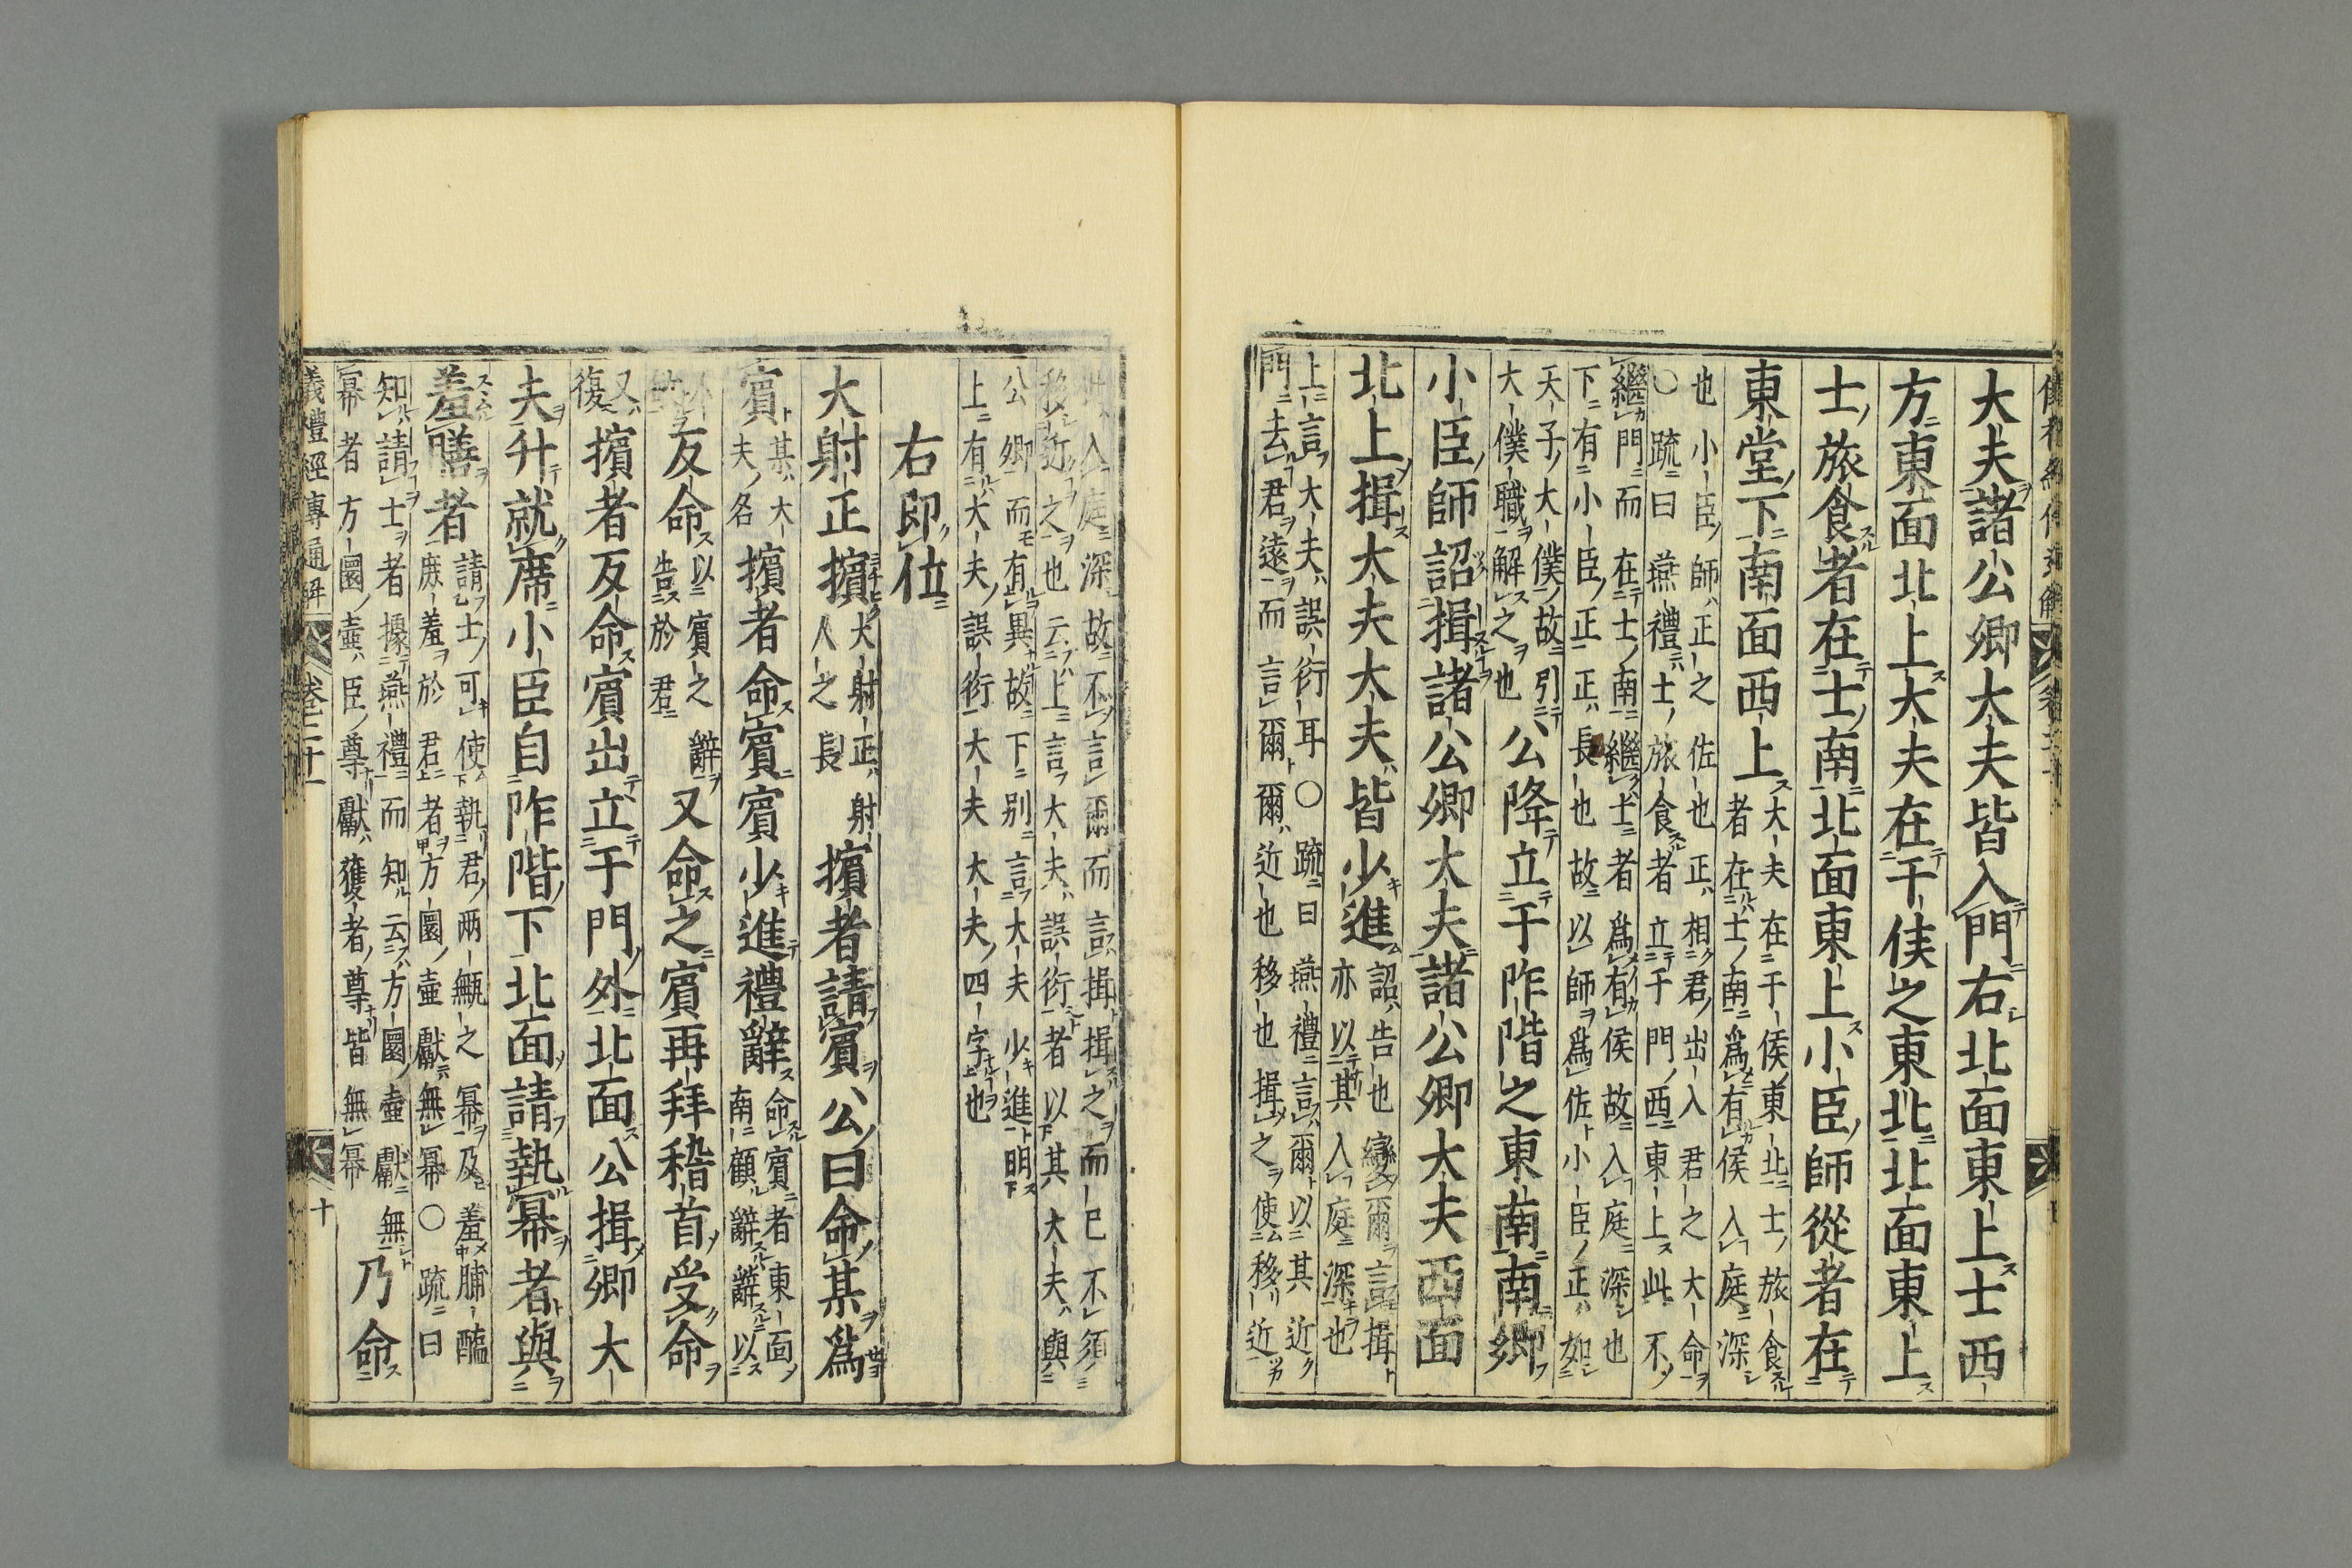 大夫諸公卿大夫皆入門右北面東上士西
方東面北上大夫在干侯之東北北面東上
士旅食者在士南北面東上小臣師從者在
東堂下南面西上大夫在干侯東北士旅食
者在士南爲有侯入庭深
也小臣師正之佐也正相君出入君之大命
○疏曰燕禮士旅食者立于門西東上此不
繼門而在士南繼士者爲有侯故入庭深也
下有小臣正正長也故以師爲佐小臣正如
天子大僕故引
大僕職解之也公降立于阼階之東南南鄉
小臣師詔揖諸公卿大夫諸公卿大夫西面
北上揖大夫大夫皆少進詔告也變爾言揖
亦以其入庭深也
上言大夫誤衍耳○疏曰燕禮言爾以其近
門去君遠而言爾爾近也移也揖之使移近
入庭深故不言爾而言揖揖之而已不須
移近之也云上言大夫誤衍者以其大夫與
公卿而有異故下別言大夫少進明
上有大夫誤衍大夫大夫四字也
右卽位
大射正擯大射正射
人之長擯者請賓公曰命某爲
賓某大
夫名擯者命賓賓少進禮辭命賓者東面
南顧辭辭以
反命以賓之辭
告於君又命之賓再拜稽首受命
又
復擯者反命賓出立于門外北面公揖卿大
夫升就席小臣自阼階下北面請執冪者與
羞膳者請士可使執君兩甒之冪及羞脯醢
庶羞於君者方圜壺獻無冪○疏曰
知請士者據燕禮而知云方圜壺獻無
冪者方圜壺臣尊獻獲者尊皆無冪乃命
儀禮經傳通解
卷二十一
十